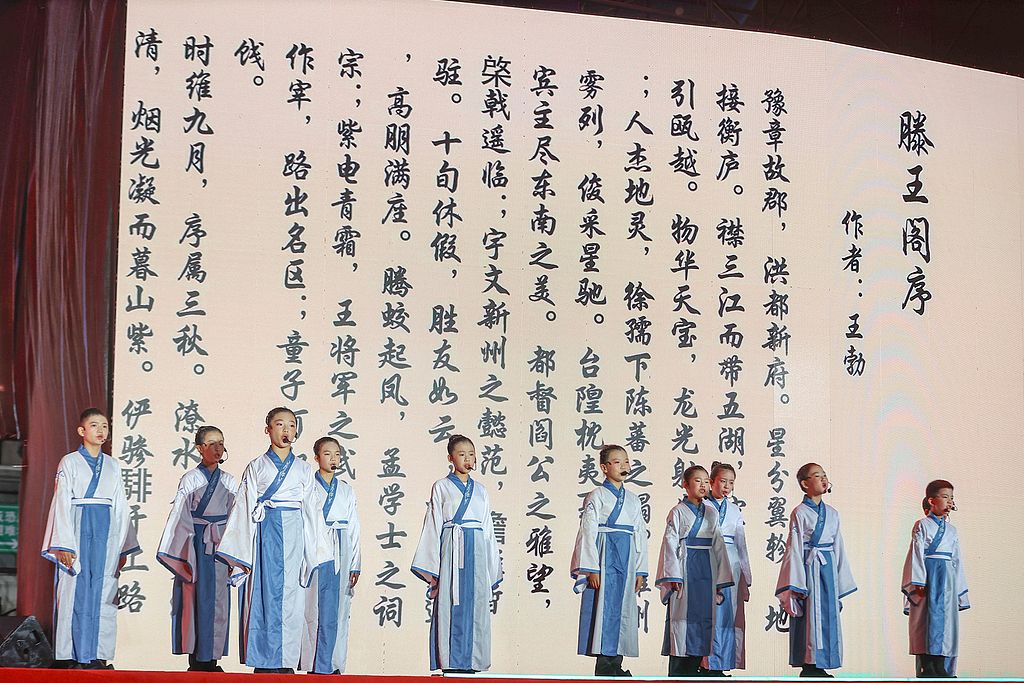 滕王阁序
作者：王勃
豫章故郡，洪都新府。星分翼轸 地
接衡庐。襟三江而带五湖，
引瓯越。物华天宝，龙光射
；人杰地灵，徐孺下陈蕃之榻。 州
雾列，俊采星驰。台隍枕夷
宾主尽东南之美。都督阎公之雅望，
棨戟遥临；宇文新州之懿范，
驻。十旬休假，胜友如云
，高朋满座。腾蛟起凤，孟学士之词
宗；紫电青霜，王将军之武
作宰，路出名区；童子何
饯。
时维九月，序属三秋。潦水
清，烟光凝而暮山紫。俨骖騑于上路